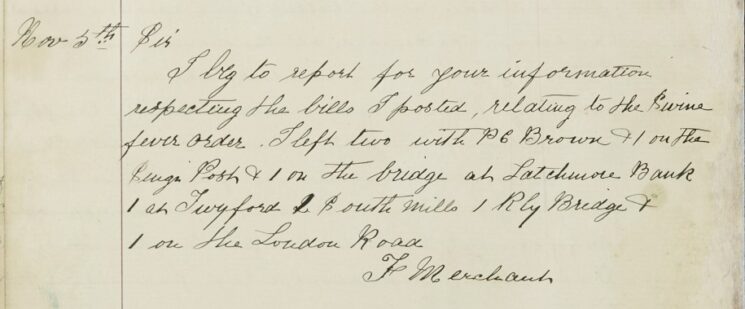 Nov 5th Sir
I beg to report for your information
respecting the bills I posted, relating to the Swine
fever order. I left two with PC Brown & 1 on the
Sign Post & 1 on the bridge at Latchmore Bank
1 at Twyford 2 South Mills 1 Rly Bridge &
1 on the London Road
F Merchant